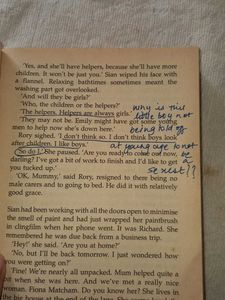 'Yes, and she'll have helpers, because she'll have more
children. It won't be just you.' Sian wiped his face with
a flannel. Relaxing bathtimes sometimes meant the
washing part got overlooked.
'And will they be girls?'
'Who, the children or the helpers?'
'The helpers. Helpers are always girls.'
'They may not be. Emily might have got some young
men to help now she's down here.'
Rory sighed. 'I don't think so. I don't think boys look
after children. I like boys.'
'So do I.' She paused. 'Are you ready to come out now,
darling? I've got a bit of work to finish and I'd like to get
you tucked up.'
'OK, Mummy,' said Rory, resigned to there being no
male carers and to going to bed. He did it with relatively
good grace.
why is this
little boy not
being told off
at young age to not
be a
sexist!?
Sian had been working with all the doors open to minimise
the smell of paint and had just wrapped her paintbrush
in clingfilm when her phone went. It was Richard. She
remembered he was due back from a business trip.
'Hey!' she said. 'Are you at home?'
'No, but I'll be back tomorrow. I just wondered how
you were getting on?'
'Fine! We're nearly all unpacked. Mum helped quite
a bit when she was here. And we've met a really nice
woman. Fiona Matcham. Do you know her? She lives in